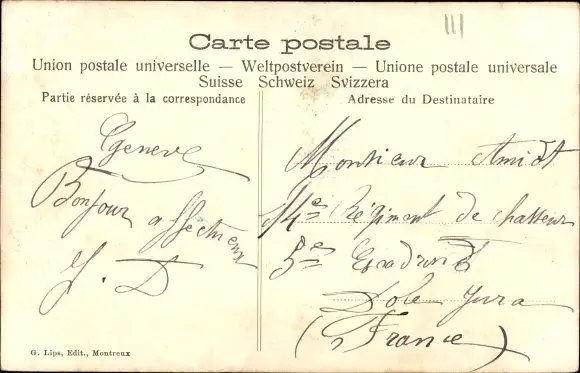 Carte postale
Union postale universelle — Weltpostverein — Unione postale universale
Suisse Schweiz Svizzera
Partie réservée à la correspondance
Adresse du Destinataire
Genève
Bonjour affectueux
J. D
Monsieur Amiot
14e Régiment de chasseur
5e Escadron
Dole Jura
(France)
G. Lips, Edit., Montreux